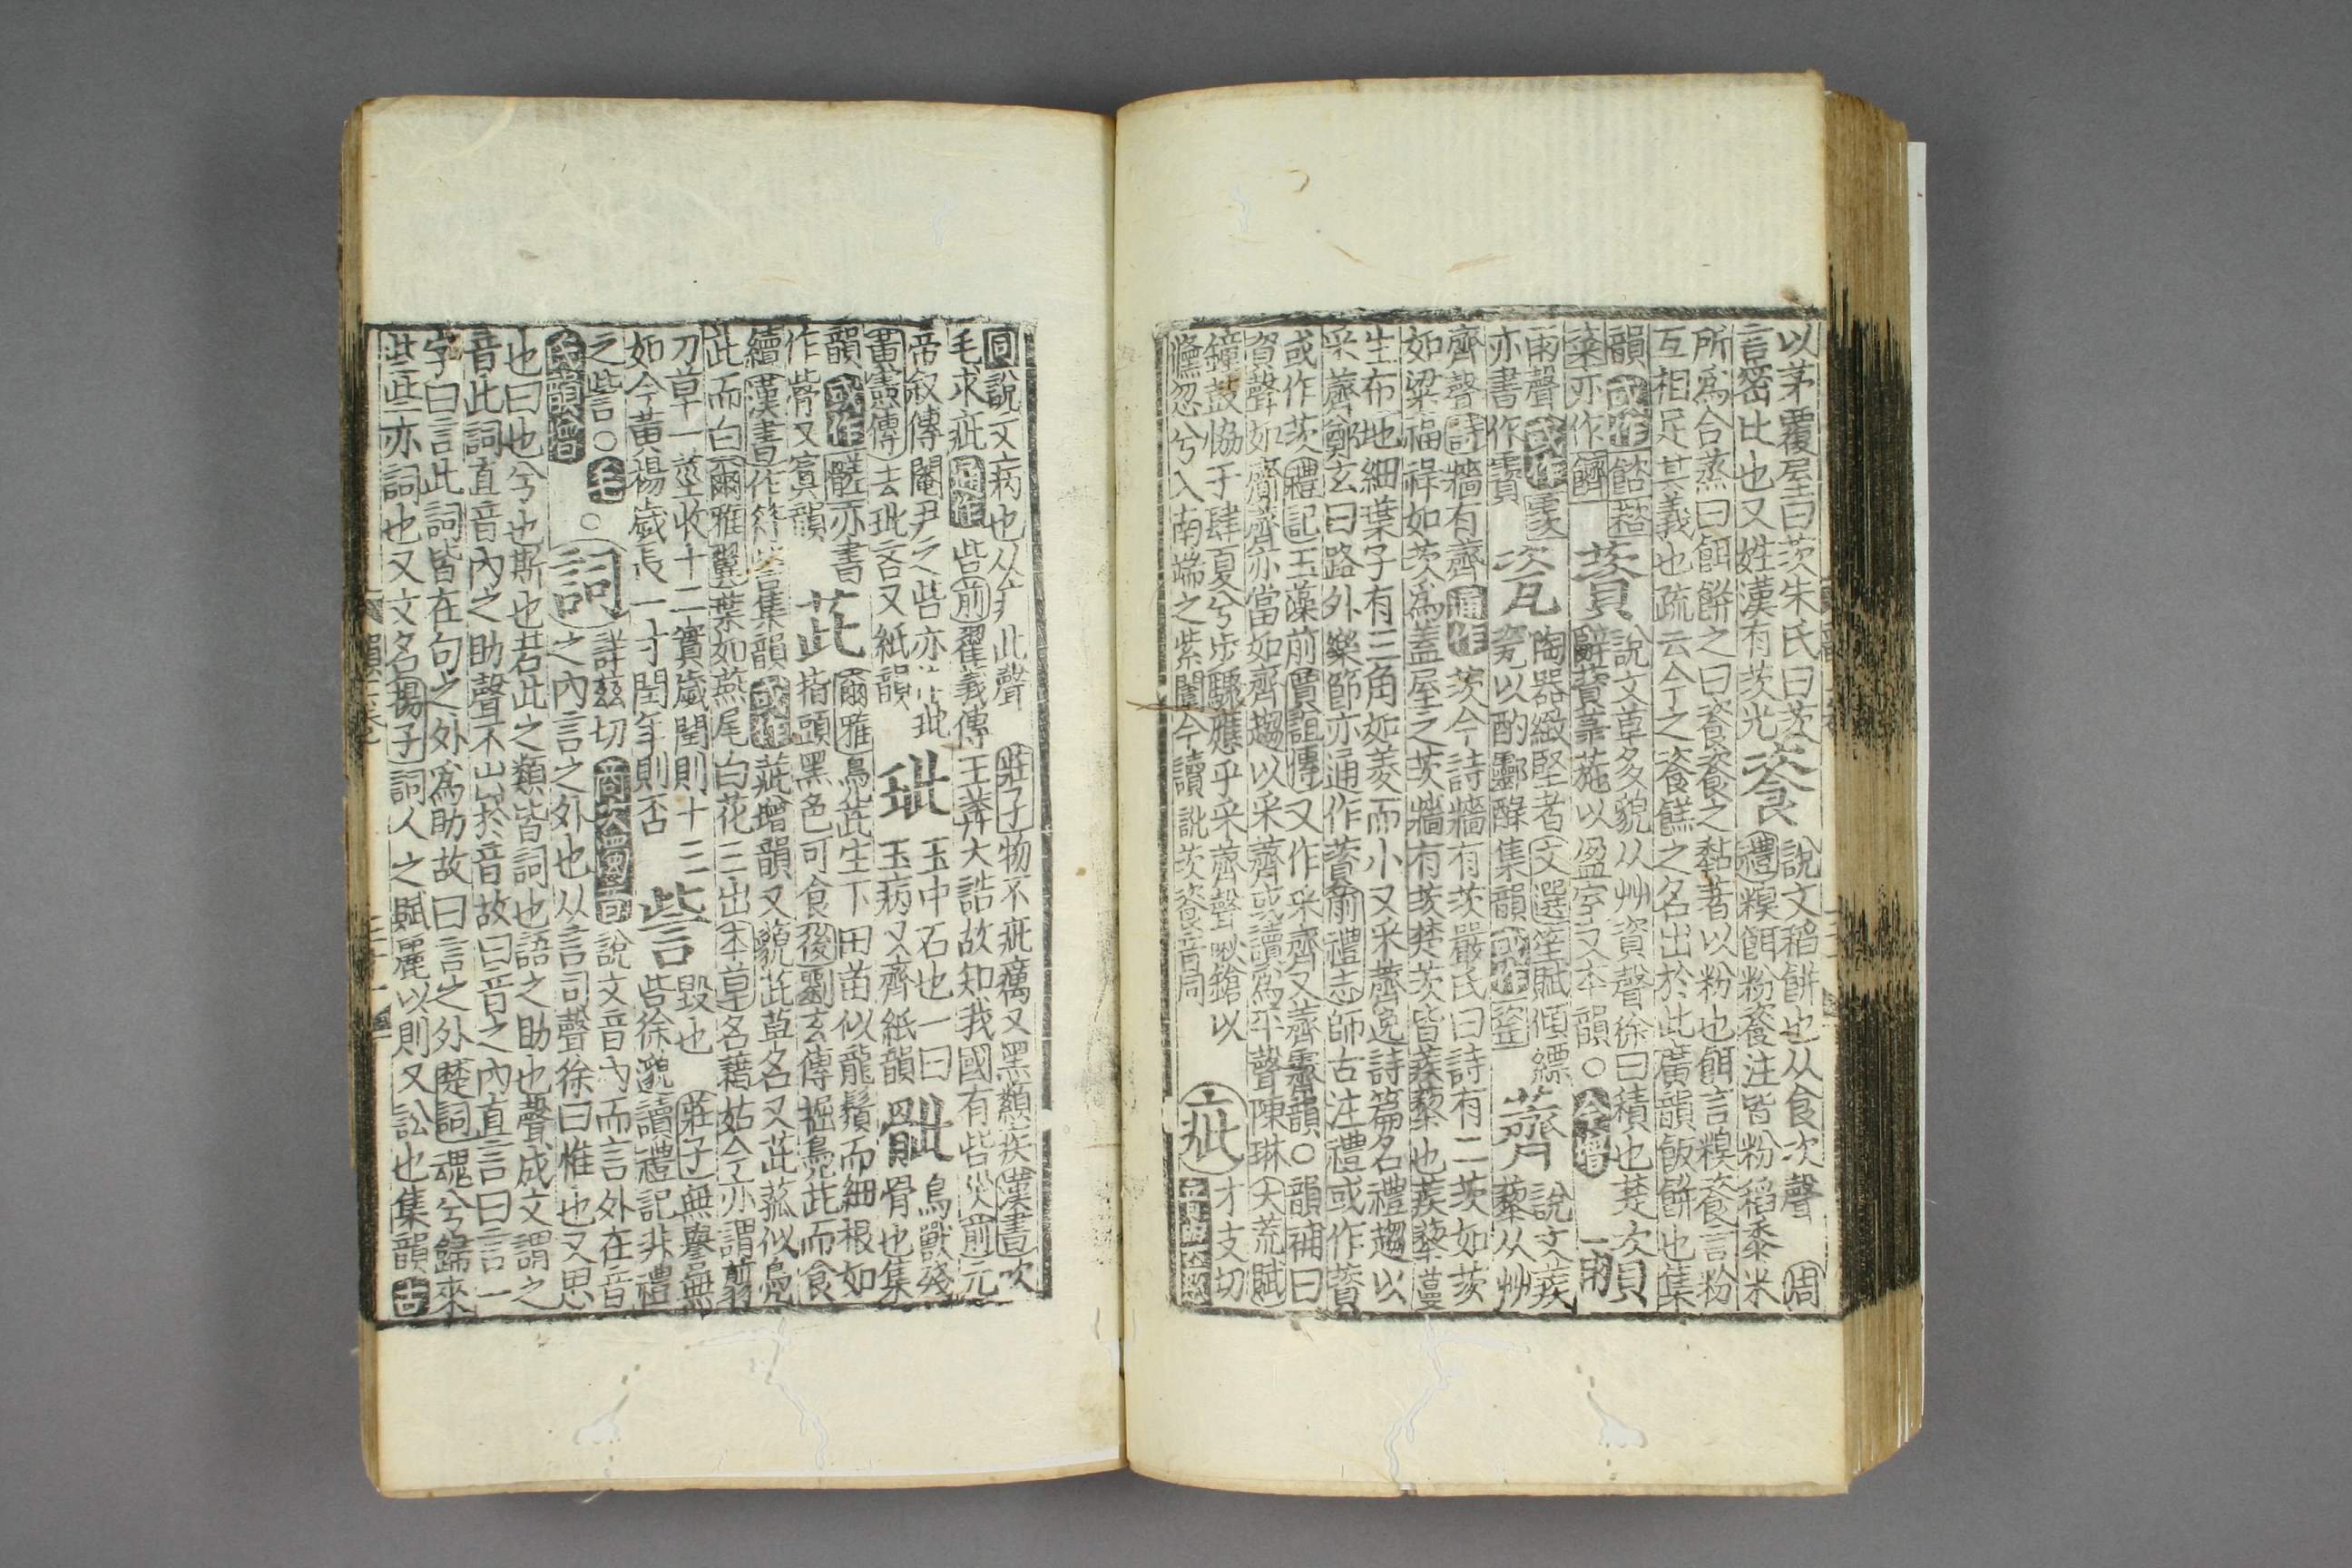 以茅覆屋曰茨朱氏曰茨
言密比也又姓漢有茨充
餈
說文稻餅也从食次聲周
禮糗餌粉餈注皆粉稻黍米
所爲合蒸曰餌餅之曰餈餈之黏著以粉也餌言糗餈言粉
互相足其義也疏云今之餈餻之名出於此廣韻飯餅也集
韻或作餎䭣
粢亦作餰
薋
說文草多貌从艸資聲徐曰積也楚次
辭薋菉葹以盈室又本韻○今增
雨聲或作
亦書作
瓷
陶器緻堅者文選笙賦傾縹
瓷以酌酃醁集韻或作
薺
說文蒺
藜从艸
齊聲詩牆有薺通作茨今詩牆有茨嚴氏曰詩有二茨如茨
如梁福祿如茨爲蓋屋之茨牆有茨楚茨皆蒺藜也蒺藜蔓
生布地細葉子有三角如菱而小又采薺逸詩篇名禮趨以
采薺鄭玄曰路外樂節亦通作薋前禮志師古注禮或作薋
或作茨禮記玉藻前賈誼傳又作采齊又薺霽韻○韻補曰
資聲如齊齊亦當如齊趨以采薺或讀爲平聲陳琳大荒賦
鐘鼓協于肆夏兮步驟應乎采薺聲啾鎗以
儵忽兮入南端之紫闥今讀訿茨資音同
疵
才支切
音與
同說文病也从疒此聲
莊子物不疵癘又黑纇疾漢書吹
毛求疵通作呰前翟義傳王莽大誥故知我國有呰災前元
帝叙傳閹尹之呰亦
黃憲傳去玼吝又紙韻
玼
玉中石也一曰
玉病又齊紙韻
骴
鳥獸殘
骨也集
韻或作髊亦書
作胔又寘韻
茈
爾雅鳧茈生下田苗似龍鬚而細根如
指頭黑色可食後劉玄傳掘鳧茈而食
續漢書作符訾集韻或作茈增韻又藐茈草名又茈菰似鳧
茈而白爾雅翼葉如燕尾白花三出本草名藉姑今亦謂剪
刀草一莖收十二實歲閏則十三
如今黃楊歲長一寸閏年則否
訾
毀也莊子無譽無
訾徐邈讀禮記非禮
之訾○毛
氏韻增
○
詞
詳茲切
說文音內而言外在音
之內言之外也从言司聲徐曰惟也又思
也曰也兮也斯也若此之類皆詞也語之助也聲成文謂之
音此詞直音內之助聲不出於音故曰音之內直言曰言一
字曰言此詞皆在句之外爲助故曰言之外楚詞魂兮歸來
些些亦詞也又文名揚子詞人之賦麗以則又訟也集韻古